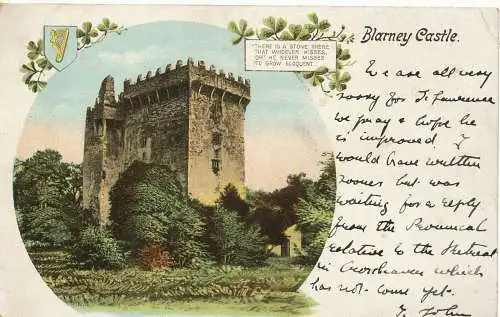 Blarney Castle.
"THERE IS A STONE THERE,
THAT WHOEVER KISSES,
OH! HE NEVER MISSES
TO GROW ELOQUENT."
We are all very
sorry for Fr Lawrence
we pray & hope he
is improved. I
would have written
sooner but was
waiting for a reply
from the Provincial
relative to the Retreat
in Crosshaven which
has not come yet.
Fr John